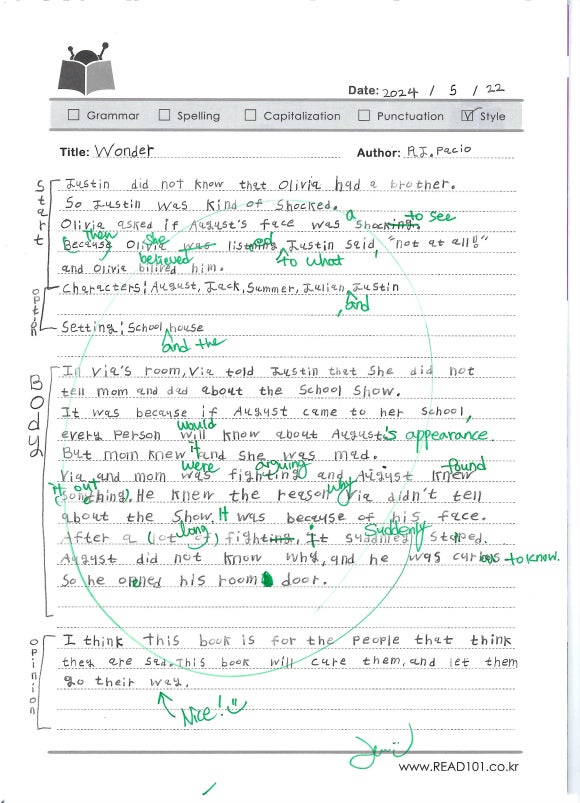 Date: 2024 / 5 / 22
Grammar Spelling Capitalization Punctuation Style
Title: Wonder Author: R.J. Pacio
Start
Justin did not know that Olivia had a brother.
So Justin was kind of shocked.
Olivia asked if August's face was shocking. a to see
Because Olivia was listening Justin said, "not at all!!"
Then she ed to what
and Olivia bilived him.
believed
option
Characters: August, Jack, Summer, Julian, Justin
, and
Setting: School, house
and the
Body
In Via's room, Via told Justin that she did not
tell mom and dad about the School Show.
It was because if August came to her School,
every person will know about August's appearance.
would
But mom knew and she was mad.
it
Via and mom was fighting and August knew
were arguing found
it out
(something). He knew the reason Via didn't tell
why
about the Show. It was because of his face.
After a (lot of) fighting, it suddinely stoped.
long Suddenly
August did not know why, and he was curious to know.
So he opened his room door.
opinion
I think this book is for the people that think
they are sad. This book will cure them, and let them
go their way.
Nice!
www.READ101.co.kr